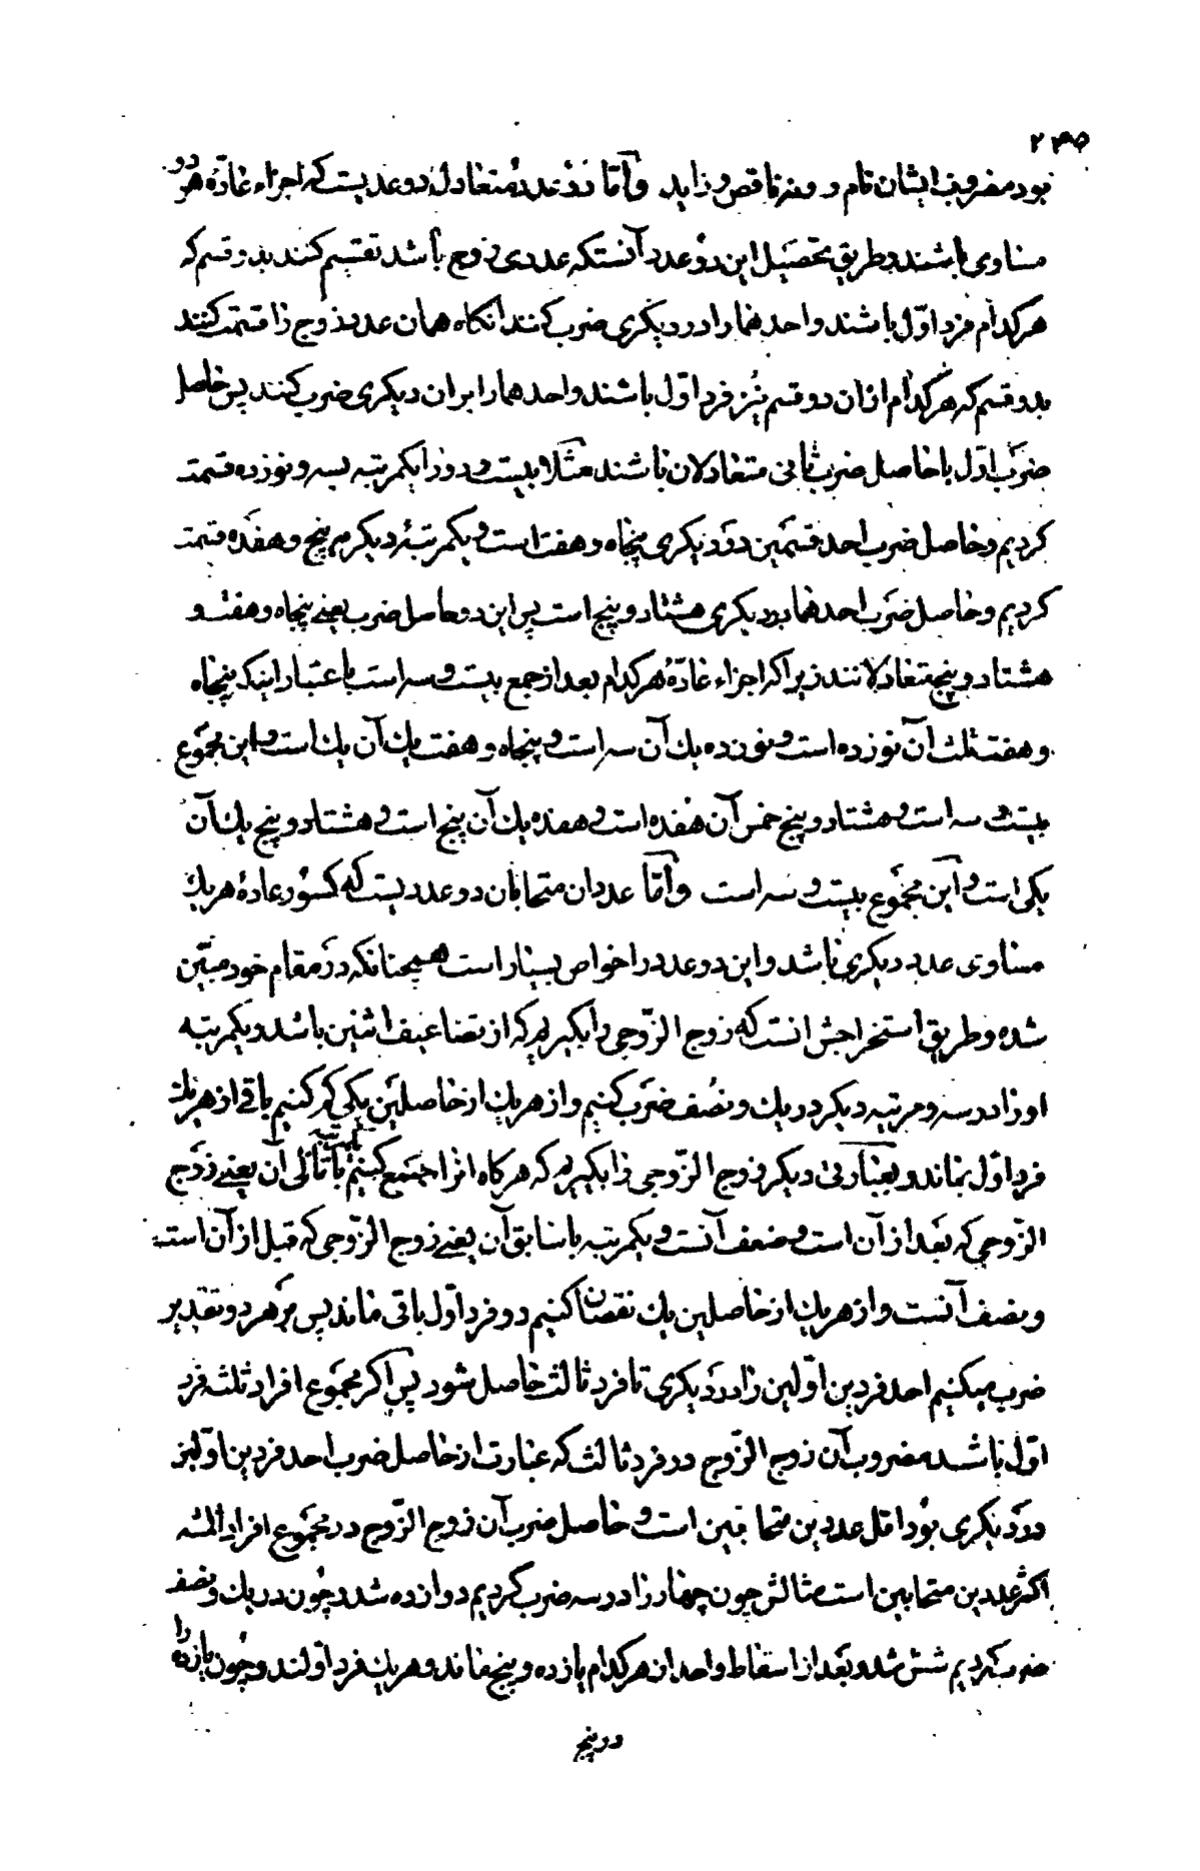 ۲۳۵
بود مضروب ایشان تام و ومنه ناقص و زاید وأمّا دو عدد متعادل دو عدیست که اجزاء عادّه هر دو
مساوی باشند و طریق تحصیل این دو عدد آنستکه عددی زوج باشد تقسیم کنند بدو قسم که
هر کدام فرد اوّل باشند واحدهما را در دیکری ضرب کنند انکاه همان عدد زوج را قسمت کنند
بدو قسم که هر کدام از ان دو قسم نیز فرد اوّل باشند واحدهما را بر ان دیکری ضرب کنند پس حاصل
ضرب اوّل با حاصل ضرب ثانی متعادلان باشند مثلا بیست و دو را یکمرتبه بسه و نوزده قسمت
کردیم و حاصل ضرب احد قسمین در دیکری پنجاه و هفت است و یکمرتبهٔ دیکر به پنج و هفده قسمت
کردیم و حاصل ضرب احدهما در دیکری هشتاد و پنج است پس این دو حاصل ضرب یعنے پنجاه و هفت و
هشتاد و پنج متعادلانند زیرا که اجزاء عادّهٔ هر کدام بعد از جمع بیست و سه است باعتبار اینکه پنجاه
و هفت ثلث آن نوزده است و نوزده یك آن سه است و پنجاه و هفت یك آن یك است و این مجموع
بیست و سه است و هشتاد و پنج خمس آن هفده است و هفده یك آن پنج است و هشتاد و پنج یك آن
یکی است و این مجموع بیست و سه است وأمّا عددان متحابان دو عددیست که کسور عادهٔ هر یك
مساوی عدد دیکری باشد و این دو عدد را خواص بسیار است همچنانکه در مقام خود مبیّن
شده و طریق استخراجش انست که زوج الزّوجی را بکیریم که از تضاعیف اثنین باشد و یکمرتبه
او را در سه و مرتبه دیکر در یك و نصف ضرب کنیم و از هر یك از حاصلین یکی کم کنیم باقی از هر یك
فرد اوّل بماند و بعبارتی دیکر زوج الزّوجی را بکیریم که هر کاه انرا جمع کنیم یکمرتبه با تالی آن یعنے زوج
الزّوجی که بعد از آن است و ضعف آنست و یکمرتبه با سابق آن یعنے زوج الزّوجی که قبل از آن است
و نصف آنست و از هر یك از حاصلین یك نقصان کنیم دو فرد اوّل باقی ماند پس بر هر دو تقدیر
ضرب میکنیم احد فردین اوّلین را در دیکری تا فرد ثالث حاصل شود پس اکر مجموع افراد ثلثه فرد
اوّل باشد مضروب آن زوج الزّوج در فرد ثالث که عبارت از حاصل ضرب احد فردین اوّلین
در دیکری بود اقل عددین متحابین است و حاصل ضرب آن زوج الزّوج در مجموع افراد ثلثه
اکثر عددین متحابین است مثالش چون چهار را در سه ضرب کردیم دوازده شد و چون در یك و نصف
ضرب کردیم شش شد و بعد از اسقاط واحد از هر کدام یازده و پنج بماند و هر یك فرد اوّلند و چون یازده را
در پنج